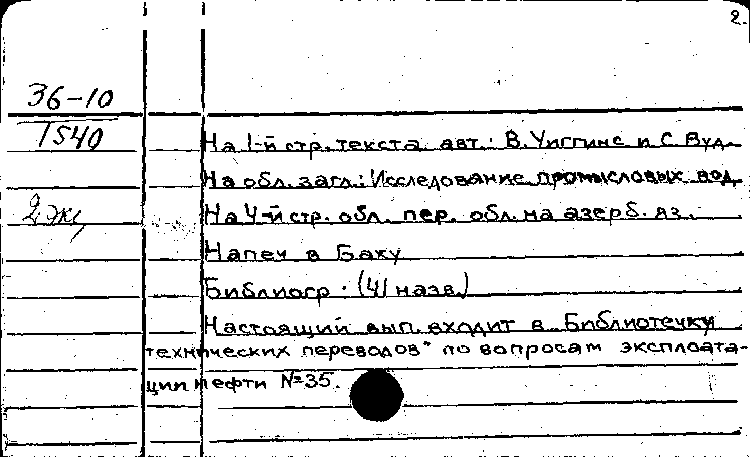 2.
36-10
1540
На 1-й стр. текста авт.: В. Уиггинс и С. Вуд.
На обл. загл.: Исследование промысловых вод.
2 экз, На 4-й стр. обл. пер. обл. на азерб. яз.
Напеч в Баку
Библиогр. (41 назв.)
Настоящий вып. входит в Библиотечку
технических переводов" по вопросам эксплоата-
ции нефти №35.